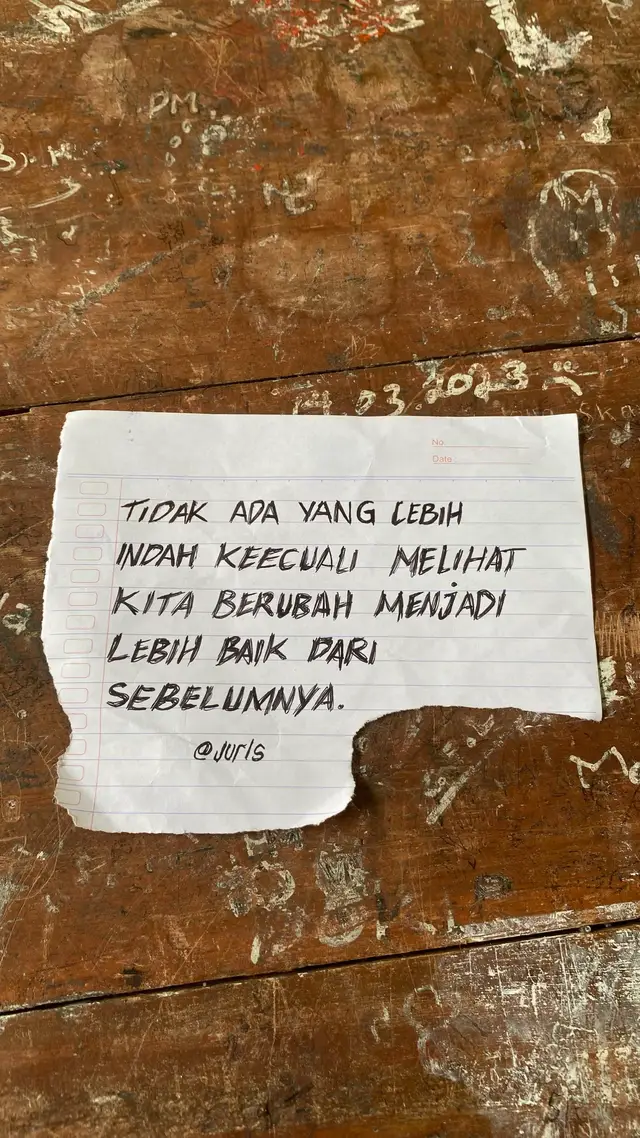 DM
14.03.2023
No.
Date
TIDAK ADA YANG LEBIH
INDAH KEECUALI MELIHAT
KITA BERUBAH MENJADI
LEBIH BAIK DARI
SEBELUMNYA.
@Jurls